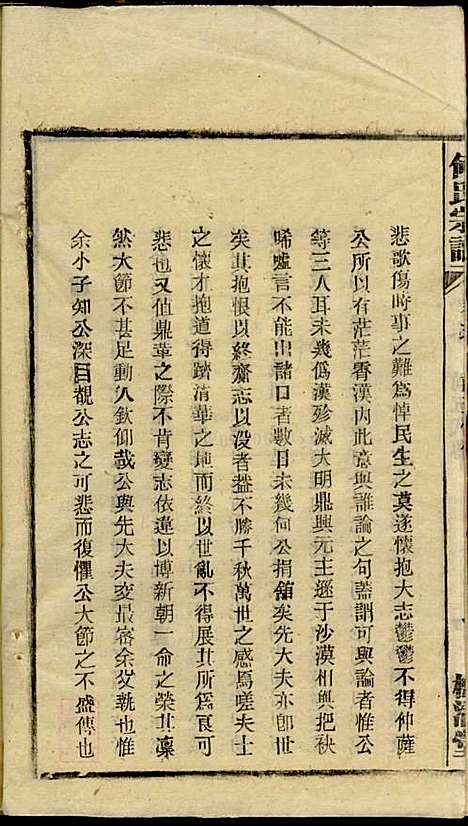 悲歌傷時事之難為悼民生之莫遂懷抱大志鬱鬱不得伸薩
公所以有茫茫霄漢內此意與誰論之句蓋謂可與論者惟公
等三人耳未幾偽漢殄滅大明鼎興元主遜于沙漠相與把袂
唏噓言不能出諸口者數日未幾何公捐舘矣先大夫亦卽世
矣其抱恨以終齎志以没者葢不勝千秋萬世之感焉嗟夫士
之懷才抱道得躋清華之地而終以世亂不得展其所為良可
悲也又值鼎革之際不肯變志依違以博新朝一命之榮其凜
然大節不甚足動人欽仰哉公與先大夫交最密余交執也惟
余小子知公深目覩公志之可悲而復懼公大節之不盛傳也
何氏宗譜